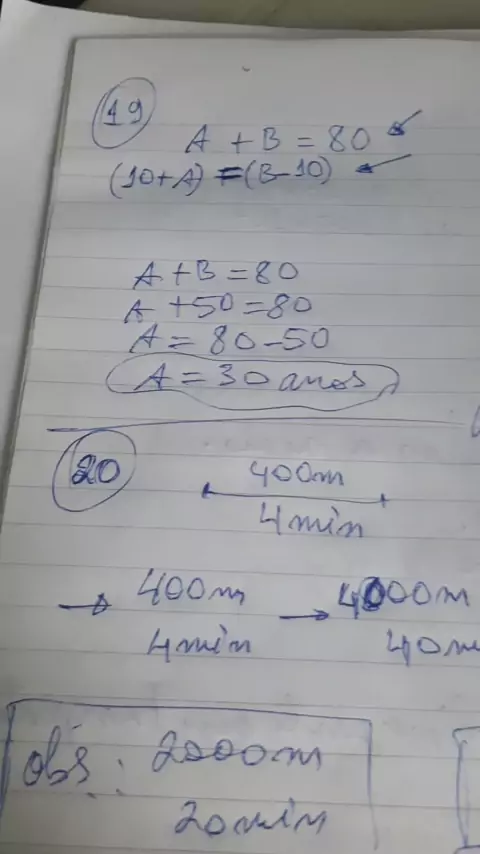 19
A + B = 80
(10+A) = (B-10)
A + B = 80
A + 50 = 80
A = 80 - 50
A = 30 anos
20
400m
4min
400m
4min
4000m
40m
obs: 2000m
20min